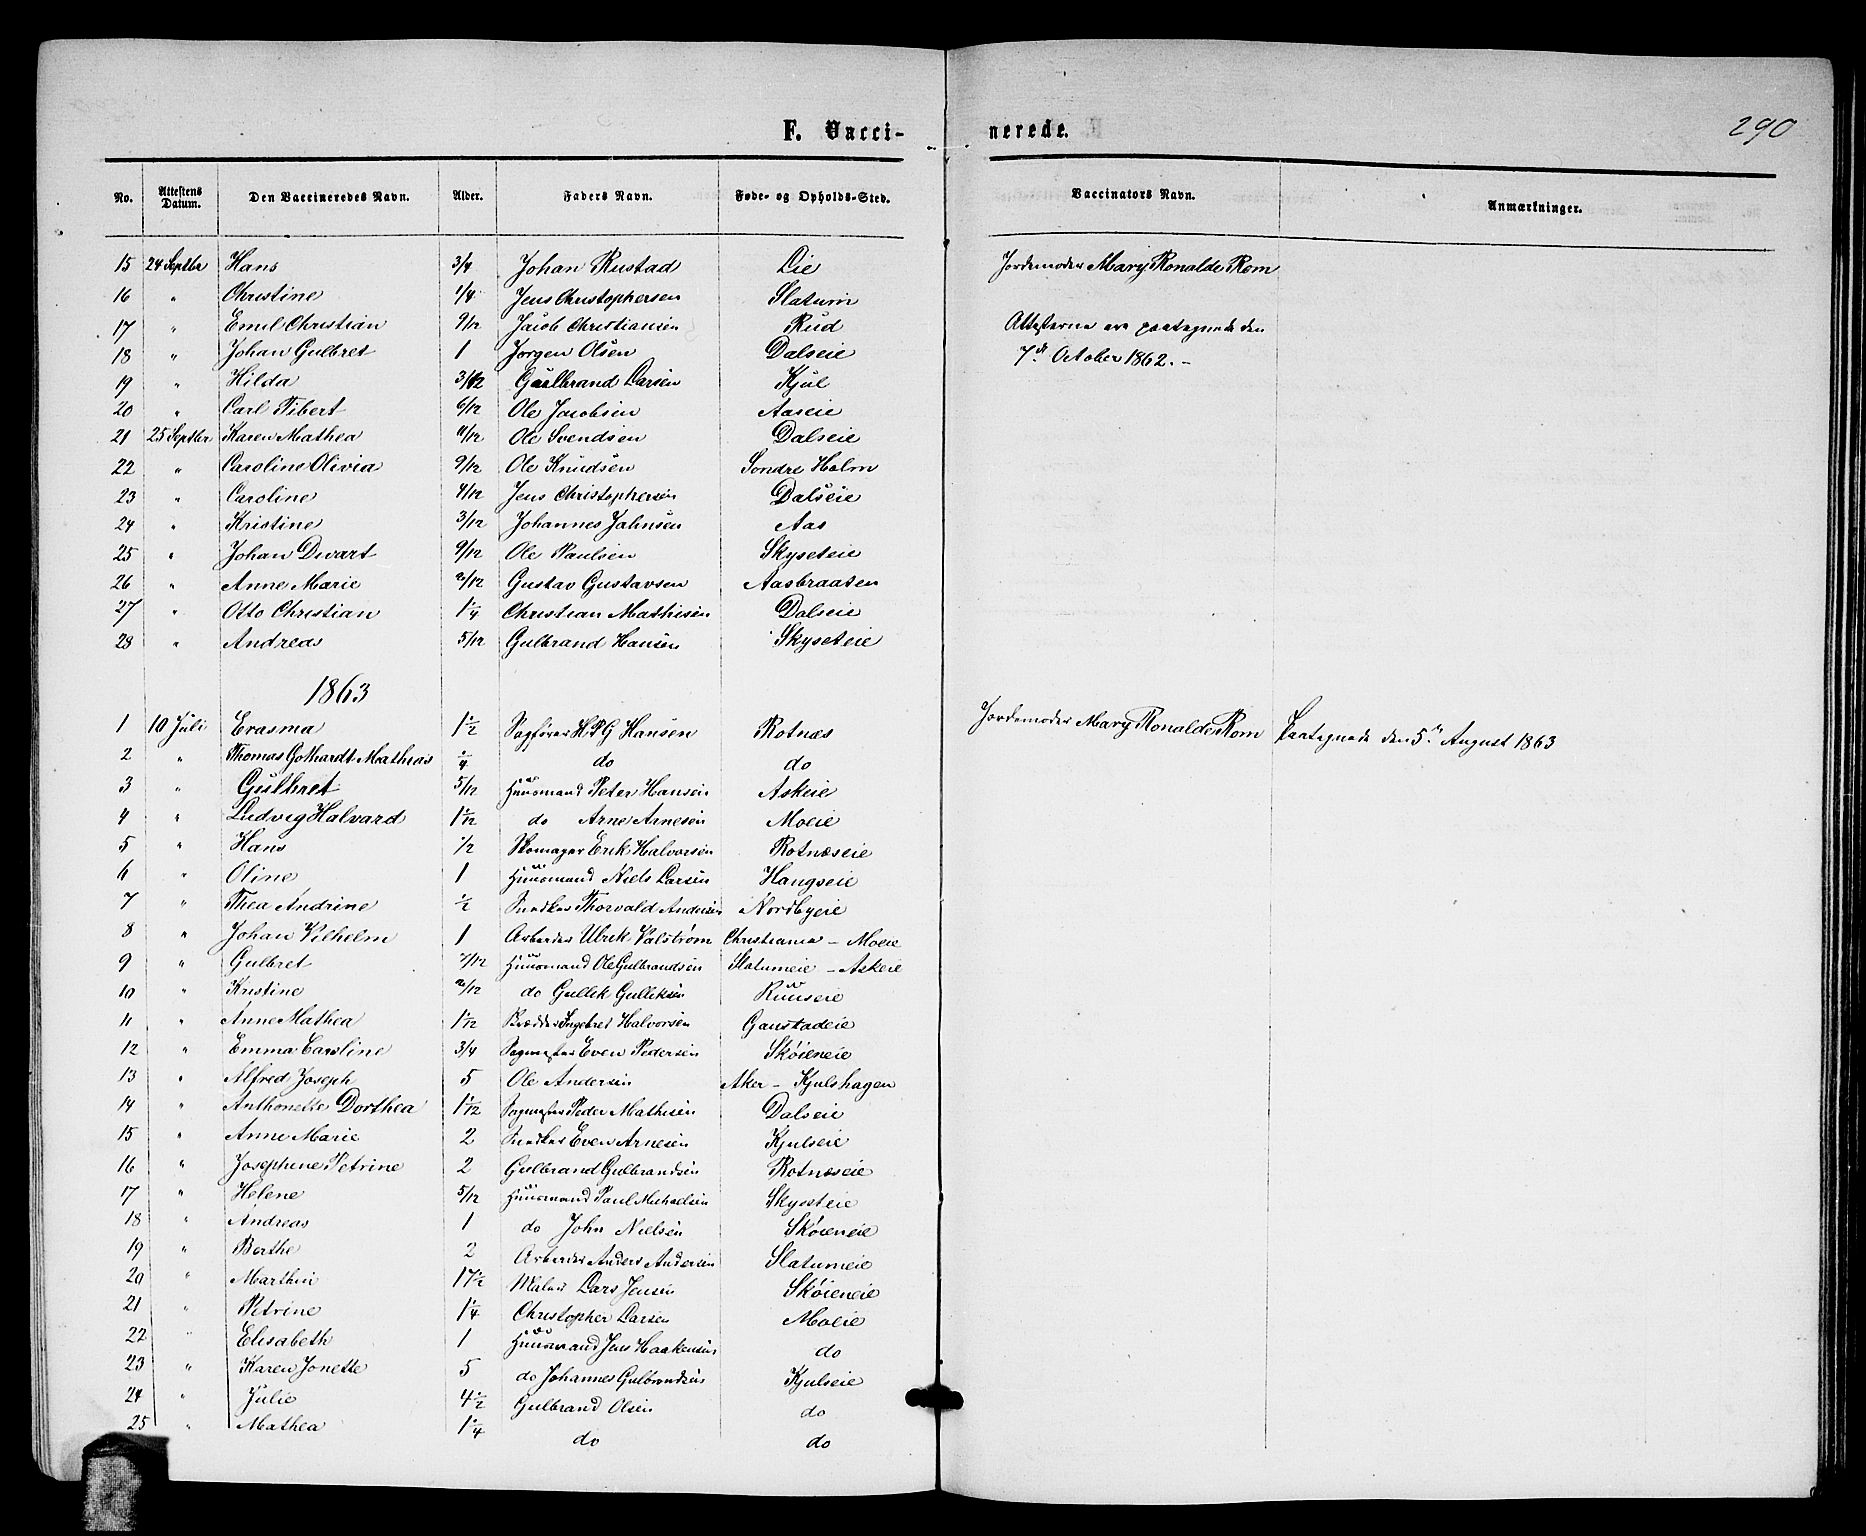 F. Vacci- nerede. 290
No. Attestens Datum. Den Vaccineredes Navn. Alder. Faders Navn. Føde- og Opholds-Sted. Vaccinators Navn. Anmærkninger.
15 24 Septbr Hans 3/4 Johan Rustad Lie Jordemoder Mary Ronalde Rom
16 " Christine 1/4 Jens Christophersen Slatum
17 " Emil Christian 9/12 Jacob Christiansen Rud Attesterne ere paategnede den
18 " Johan Gulbret 1 Jørgen Olsen Dalseie 7de October 1862. -
19 " Hilda 3/12 Gulbrand Larsen Kjul
20 " Carl Tibert 6/12 Ole Jacobsen Aaseie
21 25 Septbr Karen Mathea 11/12 Ole Svendsen Dalseie
22 " Caroline Olivia 9/12 Ole Knudsen Søndre Holm
23 " Caroline 4/12 Jens Christophersen Dalseie
24 " Kristine 3/12 Johannes Jahnsen Aas
25 " Johan Divart 9/12 Ole Paulsen Skyseteie
26 " Anne Marie Gustav Gustavsen Aasbraaten
27 " Otto Christian 1 1/4 Christian Mathisen Dalseie
28 " Andreas 5/12 Gulbrand Hansen Skyseteie
1863
1 10 Juli Erasma 1 1/2 Sagfører H.P.G Hansen Rotnæs Jordemoder Mary Ronalde Rom Paategnede den 5te August 1863
2 " Thomas Gothardt Mathias 1/4 do do
3 " Gulbret 5/12 Huusmand Peter Hansen Askeie
4 " Ludvig Halvard 1 1/12 do Arne Arnesen Moeie
5 " Hans 1/2 Skomager Erik Halvorsen Rotnæseie
6 " Oline 1 Huusmand Niels Larsen Haugseie
7 " Thea Andrine 1/2 Snedker Thorvald Andersen Nordbyeie
8 " Johan Vilhelm 1 Arbeider Ulrik Valstrøm Christiania - Moeie
9 " Gulbret 7/12 Huusmand Ole Gulbrandsen Slatumeie - Askeie
10 " Kristine do Gullik Gulliksen Ruuseie
11 " Anne Mathea 1 1/12 Ingebret Halvorsen Gaustadeie
12 " Emma Caroline 3/4 Sagmester Even Pedersen Skøieneie
13 " Alfred Joseph 5 Ole Andersen Aker - Kjulshagen
14 " Anthonette Dorthea 1 1/12 Sagmester Peder Mathisen Dalseie
15 " Anne Marie 2 Snedker Even Arnesen Kjulseie
16 " Josephine Petrine 2 Gulbrand Gulbrandsen Rotnæseie
17 " Helene 5/12 Huusmand Paul Michaelsen Skyseteie
18 " Andreas 1 do John Nielsen Skøieneie
19 " Berthe 2 Arbeider Anders Andersen Slatumeie
20 " Marthin 17 1/2 Maler Lars Jensen Skøieneie
21 " Petrine 1 1/4 Christopher Larsen Moeie
22 " Elisabeth 1 Huusmand Jens Haakensen do
23 " Karen Jonette 5 do Johannes Gulbrandsen Kjulseie
24 " Julie 4 1/2 Gulbrand Olsen do
25 " Mathea 1 1/4 do do